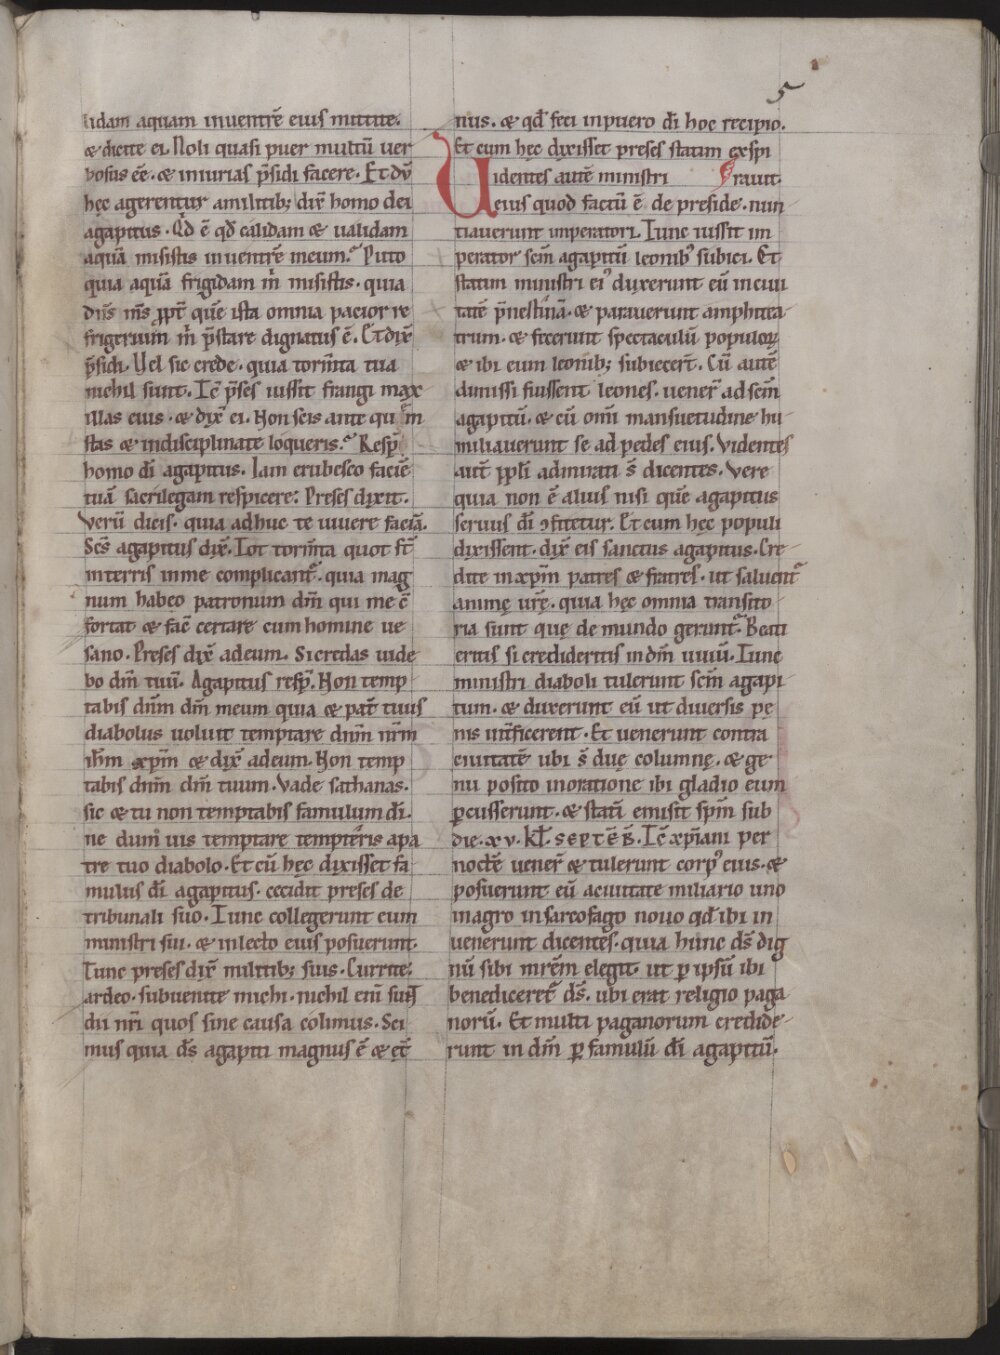 5
lidam aquam inventrē eius mittite.
& dicite ei. Noli quasi puer multū ver
bosus eē. & iniurias p̄sidi facere. Et dū
hęc agerentur a militib; dix̄ homo dei
agapitus. Qd ē qđ calidam & ualidam
aquā misistis inuentrē meum? Puto
quia aquā frigidam m̄ misistis. quia
dn̄s m̄s ꝓpt̄ quē ista omnia pacior re
frigerium m̄ p̄stare dignatus ē. Et dix̄
p̄sidi. Vel sic crede. quia torm̄ta tua
nichil sunt. Tc̄ p̄ses iussit frangi max
illas eius. & dix̄ ei. Non scis ante quē
stas & indisciplinate loqueris? Resp̄
homo dī agapitus. Iam erubesco faciē
tuā sacrilegam respicere. Preses dixit.
Verū dicis. quia adhuc te uiuere faciā.
Scs̄ agapitus dix̄. Tot torm̄ta quot st̄
interris inme complicant᷑. quia mag
num habeo patronum dn̄m qui me c̄
fortat & fac̄ certare cum homine ue
sano. Preses dix̄ adeum. Si credas uide
bo dm̄ tuū. Agapitus resp̄. Non temp
tabis dn̄m dm̄ meum quia & pat̄ tuus
diabolus uoluit temptare dn̄m nr̄m
ih̄m xp̄m & dix̄ adeum. Non temp
tabis dn̄m dm̄ tuum. Vade sathanas.
sic & tu non temptabis famulum dī.
ne dum uis temptare tempteris a pa
tre tuo diabolo. Et cū hęc dixisset fa
mulus dī agapitus. cecidit preses de
tribunali suo. Tunc collegerunt eum
ministri sui. & inlecto eius posuerunt.
Tunc preses dix̄ militib; suis. Currite.
ardeo. subuenite michi. nichil eni sunt
dii nr̄i quos sine causa colimus. Sci
mus quia ds̄ agapiti magnus ē & et̄
nus. & qđ feci inpuero dī hoc recipio.
Et cum hęc dixisset preses statim exspi
ravit.
Videntes autē ministri
eius quod factū ē de preside. nun
tiauerunt imperatori. Tunc iussit im
perator scm̄ agapitū leonib᷒ subici. Et
statim ministri ei᷒ duxerunt eū inciui
tatē p̄nestinā. & parauerunt amphitea
trum. & fecerunt spectaculū populoꝝ
& ibi eum leonib; subiecer̄t. Cū autē
dimissi fuissent leones. uener̄ ad scm̄
agapitū. & cū om̄i mansuetudine hu
miliauerunt se ad pedes eius. Videntes
aut̄ ppl̄i admirati s̄ dicentes. Vere
quia non ē alius nisi quē agapitus
seruus dī ɔfitetur. Et cum hęc populi
dixissent. dix̄ eis sanctus agapitus. Cre
dite inxp̄m patres & fratres. ut saluent᷑
animę ur̄ę. quia hęc omnia transito
ria sunt quę de mundo gerunt᷑. Beati
eritis si credideritis in dm̄ uiuū. Tunc
ministri diaboli tulerunt scm̄ agapi
tum. & duxerunt eū ut diuersis pę
nis int̄ficerent. Et uenerunt contra
ciuitatē ubi s̄ duę columnę. & ge
nu posito inoratione ibi gladio eum
ꝑcusserunt. & statī emisit sp̄m sub
die. xv. kl̄. septēb̄. Tc̄ xp̄iani per
noctē uener̄ & tulerunt corp᷒ eius. &
posuerunt eū aciuitate miliario uno
inagro insarcofago nouo qđ ibi in
uenerunt dicentes. quia hunc ds̄ dig
nū sibi mr̄em elegit. ut ꝑ ipsū ibi
benediceret᷑ ds̄. ubi erat religio paga
norū. Et multi paganorum credide
runt in dm̄ ꝑ famulū dī agapitū.